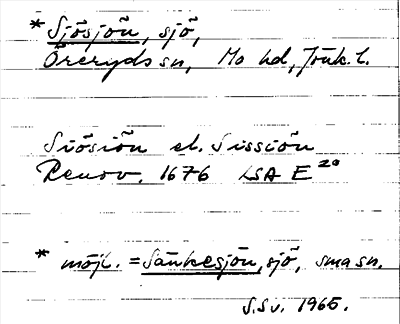 * Sjösjön, sjö,
Öreryds sn, Mo hd, Jönk. l.
Siösiön el. Sissiön
Renov. 1676 LSA E 20
* möjl. = Sänkesjön, sjö, sma sn.
S.Sv. 1965.